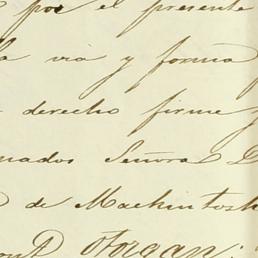 por el presente
la via y forma
derecho firme y
nados Señora D
de Mackintosh
otorgan: